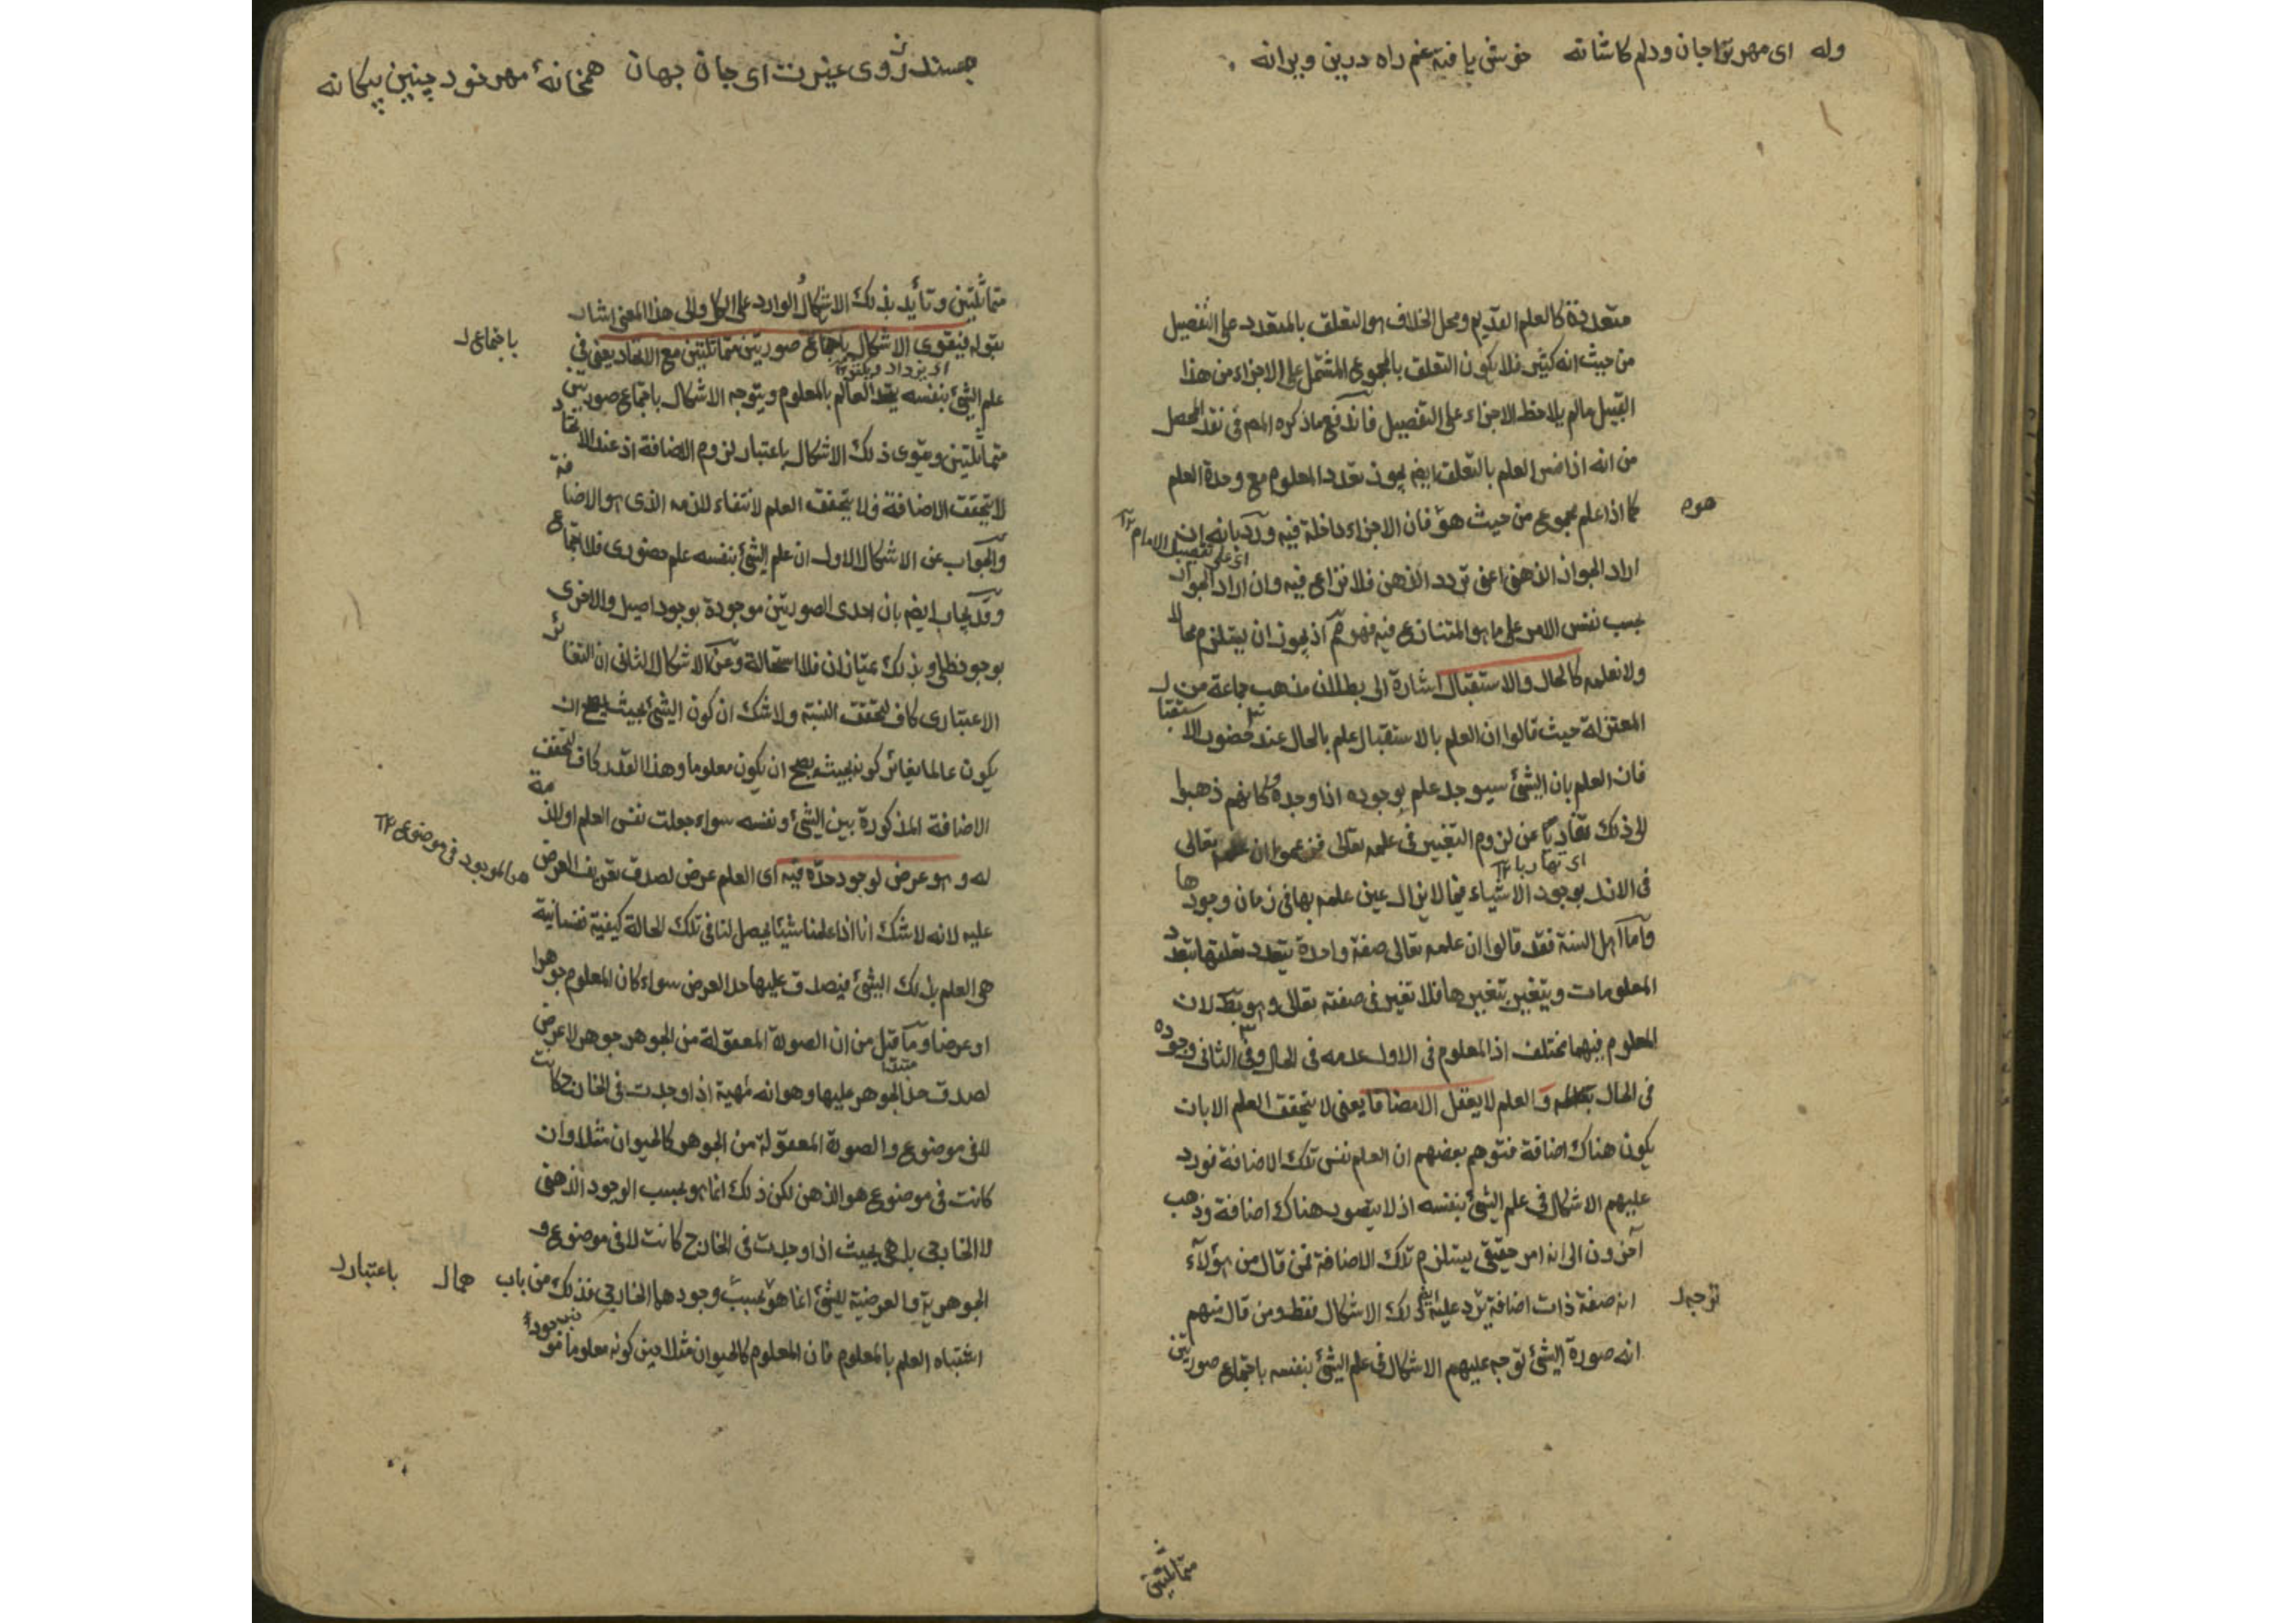 وله ای مهر ترا جان و دلم کاشانه خوش یافته غم راه درین ویرانه
متعددة كالعلم القديم ومحل الخلاف هو التعلق بالمتعدد على التفصيل
من حيث انه كثير فلا يكون التعلق بالمجموع المشتمل على الاجزاء من هذا
القبيل مالم يلاحظ الاجزاء على التفصيل فاندفع ماذكره المص فى نقد المحصل
من انه اذا فسر العلم بالتعلق ايضا يجوز تعدد المعلوم مع وحدة العلم
كما اذا علم مجموع من حيث هو فان الاجزاء داخلة فيه ورد بانه ان
هوه
اى على تفصيل الامام
اراد الجواز الذهنى اعنى تردد الذهن فلا نزاع فيه وان اراد الجواز
بحسب نفس الامر على ما هو المتنازع فيه فهو مم اذ يجوز ان يستلزم محالا
ولا نعلمه كالحال والاستقبال اشارة الى بطلان مذهب جماعة من
المعتزلة حيث قالوا ان العلم بالاستقبال علم بالحال عند حضور الاستقبال
فان العلم بان الشئ سيوجد علم بوجوده اذا وجد وكانهم ذهبوا
الى ذلك تفاديا عن لزوم التغيير فى علمه تعالى فزعموا ان علمه تعالى
اى تهاربا
فى الازل بوجود الاشياء فيما لا يزال عين علمه بها فى زمان وجودها
واما اهل السنة فقد قالوا ان علمه تعالى صفة واحدة يتعدد تعلقها بتعدد
المعلومات ويتغير بتغيرها فلا تغير فى صفته تعالى وهو بط لان
المعلوم فيهما مختلف اذ المعلوم فى الاول عدمه فى الحال وفى الثانى وجوده
فى الحال والعلم لا يعقل الا مضافا يعنى لا يتحقق العلم الا بان
يكون هناك اضافة فتوهم بعضهم ان العلم نفس تلك الاضافة فورد
عليهم الاشكال فى علم الشئ بنفسه اذ لا يتصور هناك اضافة وذهب
آخرون الى انه امر حقيقى يستلزم تلك الاضافة فمن قال من هؤلاء
انه صفة ذات اضافة يرد عليه ذلك الاشكال فقط ومن قال منهم
توجه
انه صورة الشئ توجه عليهم الاشكال فى علم الشئ بنفسه باجتماع صورتين
متماثلتين
جستند ز روی عیرت ای جان جهان همخانهٔ مهر خود چنین بیکانه
متماثلتين وتأيد بذلك الاشكال الوارد على الكل والى هذا المعنى اشار
بقوله فيقوى الاشكال باجتماع صورتين متماثلتين مع الاتحاد يعنى فى
باجتماع
اى يزداد ويتقوى
علم الشئ بنفسه يتحد العالم بالمعلوم ويتوجه الاشكال باجتماع صورتين
متماثلتين ويقوى ذلك الاشكال باعتبار لزوم الاضافة اذ عند الاتحاد
لا يتحقق الاضافة فلا يتحقق العلم لانتفاء لازمه الذى هو الاضافة
والجواب عن الاشكال الاول ان علم الشئ بنفسه علم حضورى فلا اجتماع
وقد يجاب ايضا بان احدى الصورتين موجودة بوجود اصيل والاخرى
بوجود ظلى وبذلك يمتازان فلا استحالة وعن الاشكال الثانى ان التغاير
الاعتبارى كاف لتحقق النسبة ولا شك ان كون الشئ بحيث يصح ان
يكون عالما يغاير كونه بحيث يصح ان يكون معلوما وهذا القدر كاف لتحقق
الاضافة المذكورة بين الشئ ونفسه سواء جعلت نفس العلم او لازمة
له وهو عرض لوجود حده فيه اى العلم عرض لصدق تعريف العرض
هو الموجود فى موضوع
عليه لانه لا شك انا اذا علمنا شيئا يحصل لنا فى تلك الحالة كيفية نفسانية
هى العلم بذلك الشئ فيصدق عليها حد العرض سواء كان المعلوم جوهرا
او عرضا وما قيل من ان الصورة المعقولة من الجوهر جوهر لا عرض
لصدق حد الجوهر عليها وهو انه مهية اذا وجدت فى الخارج كانت
لا فى موضوع والصورة المعقولة من الجوهر كالحيوان مثلا وان
كانت فى موضوع هو الذهن لكن ذلك انما هو بحسب الوجود الذهنى
لا الخارجى بل هى بحيث اذا وجدت فى الخارج كانت لا فى موضوع و
الجوهرية والعرضية للشئ انما هو بحسب وجودهما الخارجى فذلك من باب
هما
باعتبار
اشتباه العلم بالمعلوم فان المعلوم كالحيوان مثلا حين كونه معلوما